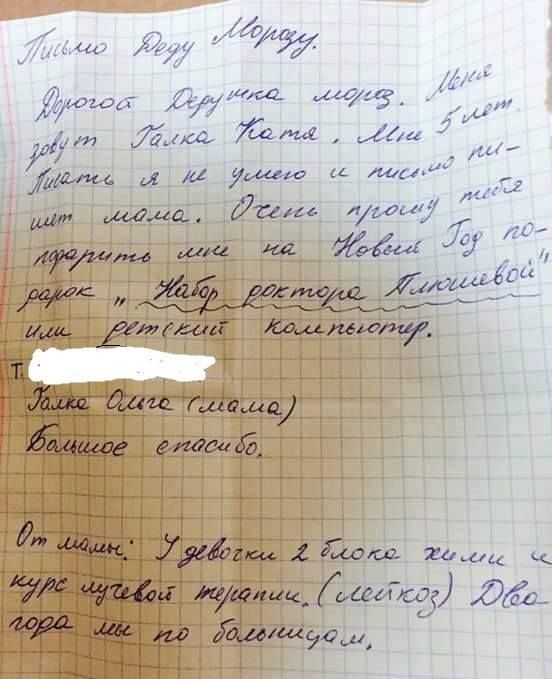 Письмо Деду Морозу.
Дорогой Дедушка мороз. Меня
зовут Галка Катя. Мне 5 лет.
Писать я не умею и письмо пи-
шет мама. Очень прошу тебя
подарить мне на Новый Год по-
дарок „Набор доктора Плюшевой"
или детский компьютер.
Т.
Галка Ольга (мама)
Большое спасибо.
От мамы: У девочки 2 блока химии и
курс лучевой терапии. (лейкоз) Два
года мы по больницам.